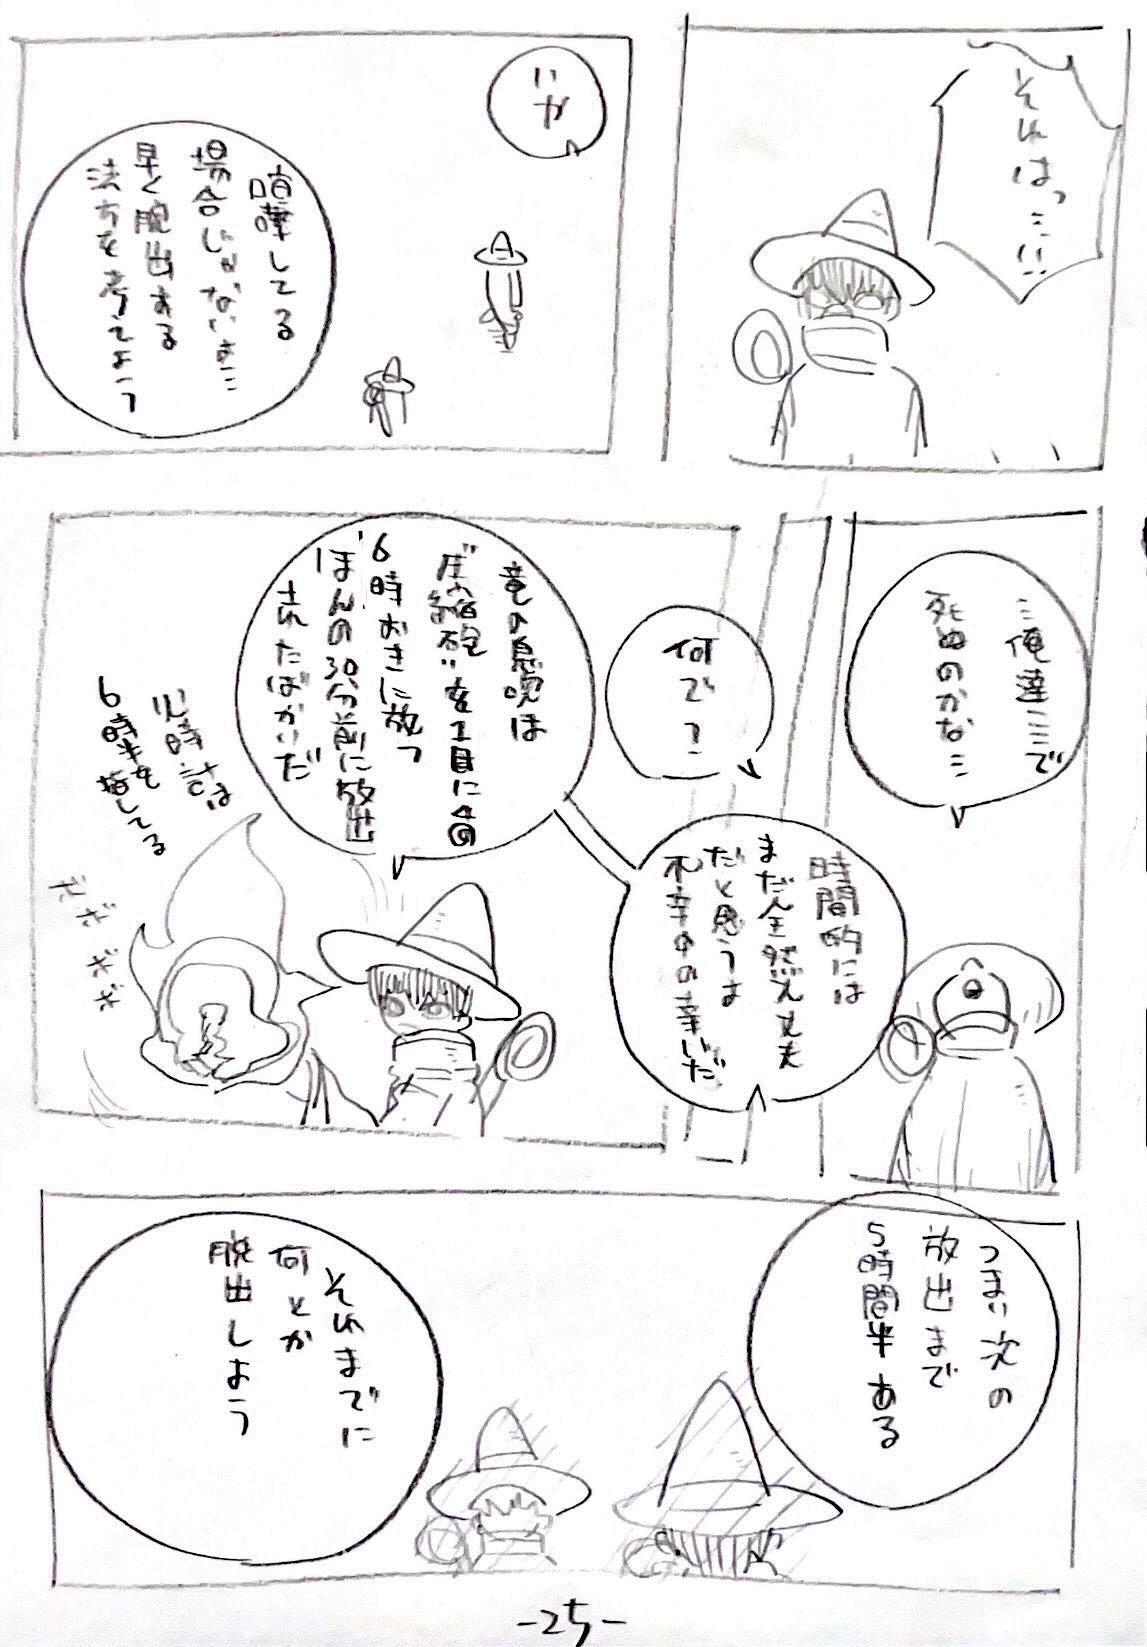 それはっ…!!
いが
喧嘩してる
場合じゃないよ…
早く脱出する
方法を考えよう
…俺達ここで
死ぬのかな…
何で?
時間的には
まだ全然大丈夫
だと思うよ
不幸中の幸いだ
竜の息吹は
"圧縮砲"を1日に4回
6時おきに放つ
ほんの30分前に放出
されたばかりだ
心時計は
6時半を
指してる
つまり次の
放出まで
5時間半ある
それまでに
何とか
脱出しよう
-25-